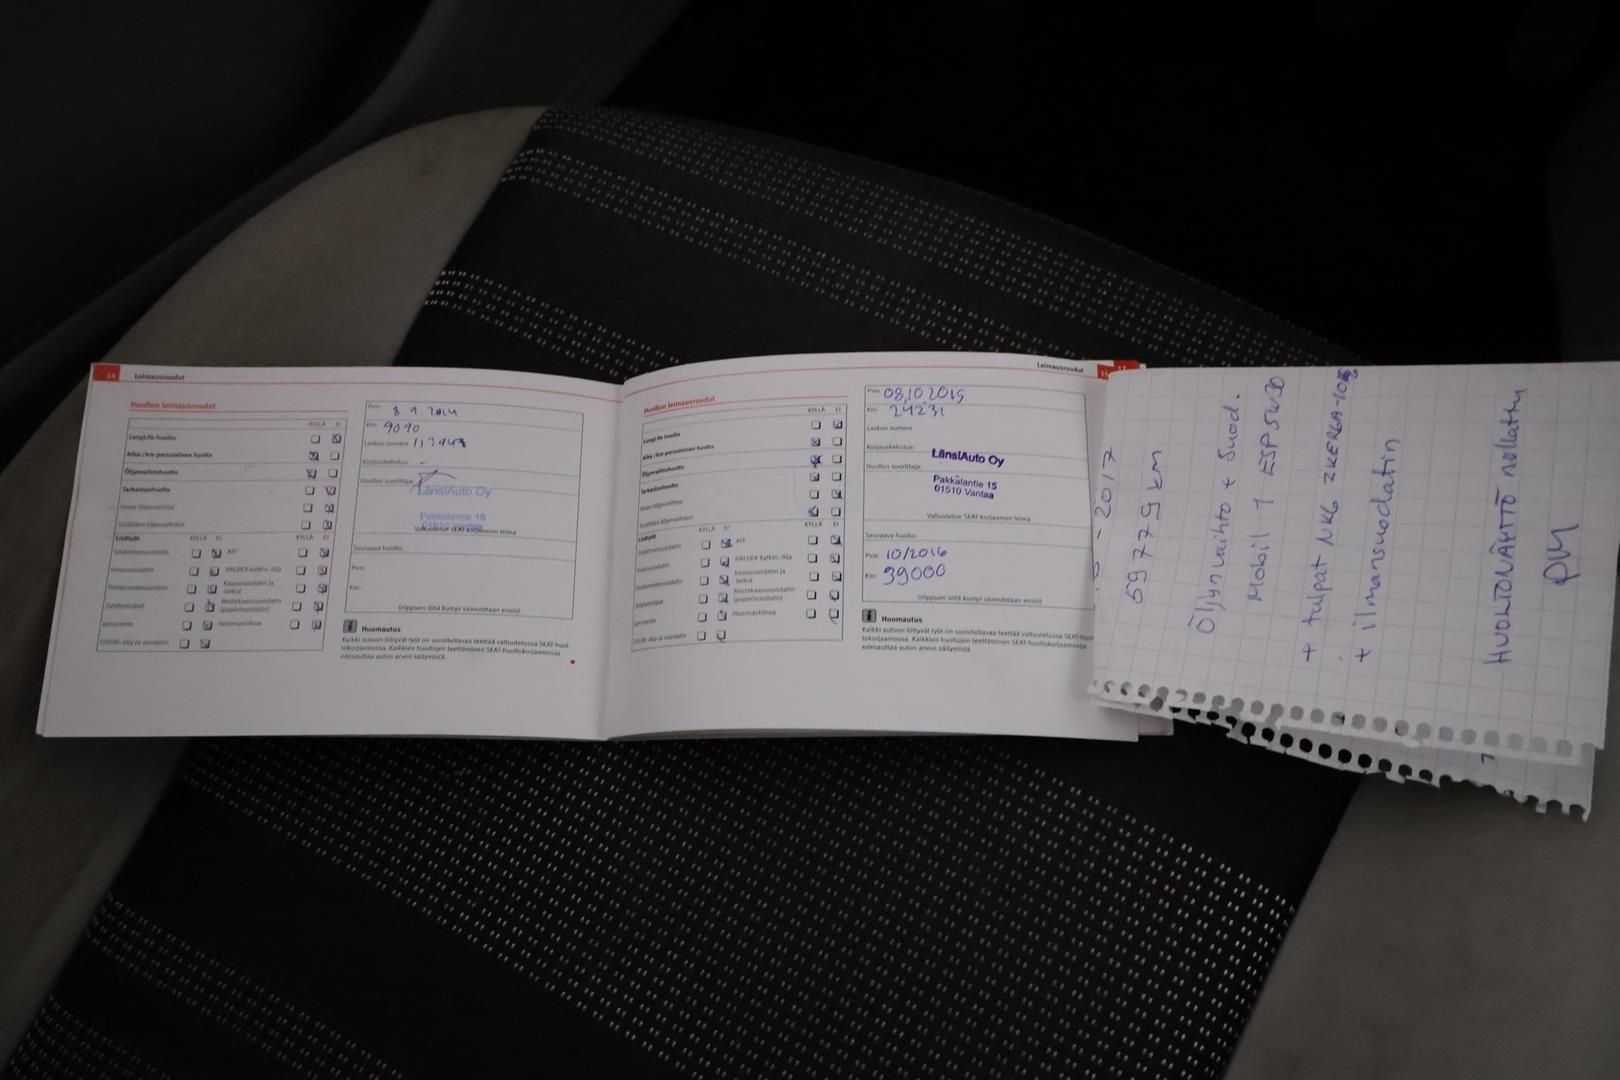 Leimausruudut
Huollon leimausruudut
KYLLÄ EI
LongLife-huolto
Aika-/km-perusteinen huolto
Öljynvaihtohuolto
Tarkastushuolto
Ilman öljynvaihtoa
Sisältäen öljynvaihdon
Lisätyöt KYLLÄ EI KYLLÄ EI
ATF
HALDEX-kytkin: öljy
Kaasusuodatin ja
letkut
Nestekaasusuodatin
(paperisuodatin)
Sytytystulpat
Hammashihna
Jarruneste
Pvm: 8.9.2014
Km: 9090
Laskun numero
Korjauskehotus: -
Huollon suorittaja:
LänsiAuto Oy
Pakkalantie 15
01510 Vantaa
Valtuutetun SEAT-korjaamon leima
Seuraava huolto:
Pvm:
Km:
(riippuen siitä kumpi saavutetaan ensin)
Huomautus
Kaikki autoon liittyvät työt on suositeltavaa teettää valtuutetussa SEAT-huol-
tokorjaamossa. Kaikkien huoltojen teettäminen SEAT-huoltokorjaamossa
edesauttaa auton arvon säilymistä.
Leimausruudut
Huollon leimausruudut
KYLLÄ EI
LongLife-huolto
Aika-/km-perusteinen huolto
Öljynvaihtohuolto
Tarkastushuolto
Ilman öljynvaihtoa
Sisältäen öljynvaihdon
Lisätyöt KYLLÄ EI KYLLÄ EI
ATF
HALDEX-kytkin: öljy
Kaasusuodatin ja
letkut
Nestekaasusuodatin
(paperisuodatin)
Sytytystulpat
Hammashihna
Jarruneste
Pvm: 08.10.2015
Km: 24231
Laskun numero
Korjauskehotus:
Huollon suorittaja:
LänsiAuto Oy
Pakkalantie 15
01510 Vantaa
Valtuutetun SEAT-korjaamon leima
Seuraava huolto:
Pvm: 10/2016
Km: 39000
(riippuen siitä kumpi saavutetaan ensin)
Huomautus
Kaikki autoon liittyvät työt on suositeltavaa teettää valtuutetussa SEAT-huol-
tokorjaamossa. Kaikkien huoltojen teettäminen SEAT-huoltokorjaamossa
edesauttaa auton arvon säilymistä.
- 2017
59779 km
Öljynvaihto + Suod.
Mobil 1 ESP 5W30
+ tulpat NKG
+ ilmansuodatin
HUOLTONÄYTTÖ nollattu
PM